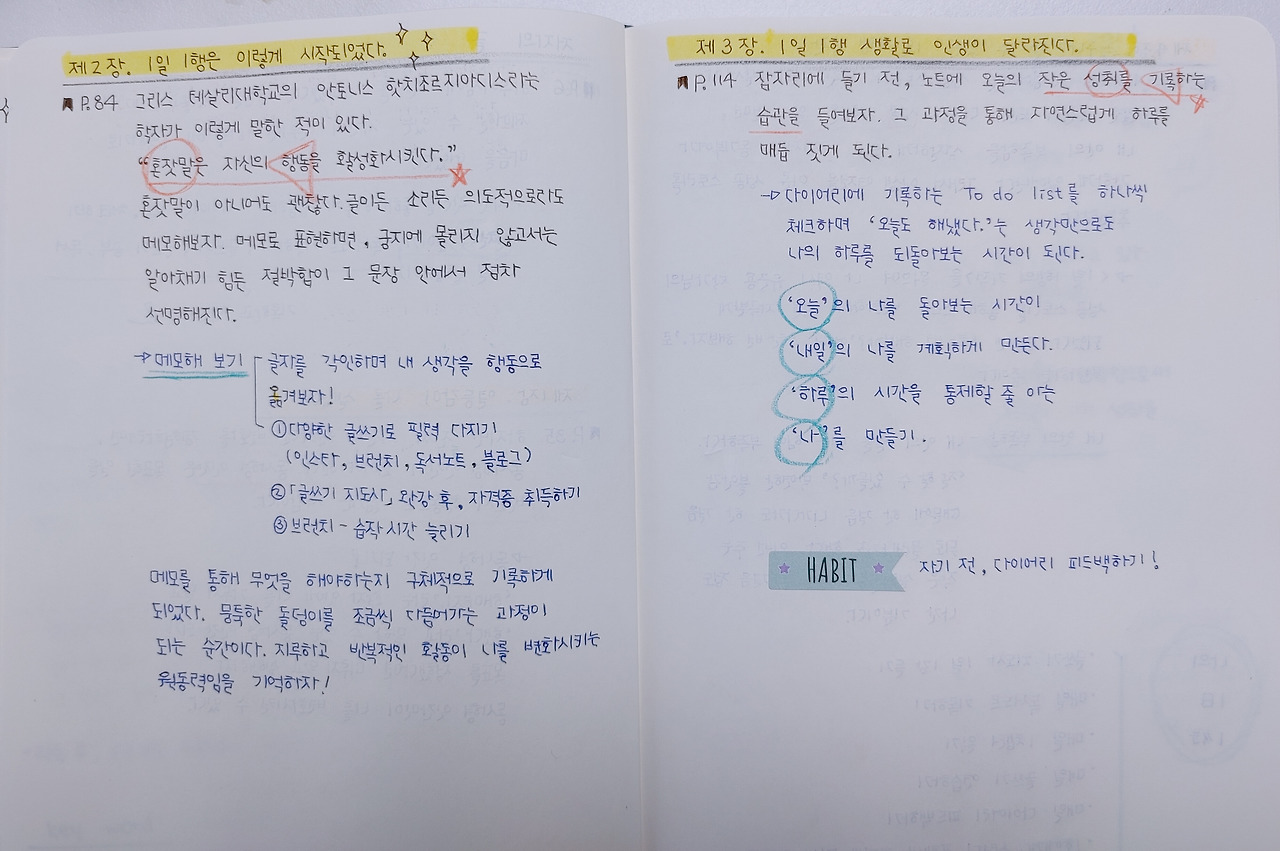 제2장. 1일 1행은 이렇게 시작되었다.
P.84 그리스 테살리대학교의 안토니스 핫치조르지아디스라는
학자가 이렇게 말한 적이 있다.
"혼잣말은 자신의 행동을 활성화시킨다."
혼잣말이 아니어도 괜찮다. 글이든 소리든 의도적으로라도
메모해보자. 메모로 표현하면, 궁지에 몰리지 않고서는
알아채기 힘든 절박함이 그 문장 안에서 점차
선명해진다.
→ 메모해 보기 글자를 각인하며 내 생각을 행동으로
옮겨보자!
①다양한 글쓰기로 필력 다지기
(인스타, 브런치, 독서노트, 블로그)
②「글쓰기 지도사」 완강 후, 자격증 취득하기
③브런치 - 습작 시간 늘리기
메모를 통해 무엇을 해야하는지 구체적으로 기록하게
되었다. 뭉툭한 돌덩이를 조금씩 다듬어가는 과정이
되는 순간이다. 지루하고 반복적인 활동이 나를 변화시키는
원동력임을 기억하자!
제3장. 1일 1행 생활로 인생이 달라진다.
P.114 잠자리에 들기 전, 노트에 오늘의 작은 성취를 기록하는
습관을 들여보자. 그 과정을 통해 자연스럽게 하루를
매듭 짓게 된다.
→ 다이어리에 기록하는 To do list를 하나씩
체크하며 '오늘도 해냈다.'는 생각만으로도
나의 하루를 되돌아보는 시간이 된다.
'오늘'의 나를 돌아보는 시간이
'내일'의 나를 계획하게 만든다.
'하루'의 시간을 통제할 줄 아는
'나'를 만들기.
HABIT 자기 전, 다이어리 피드백하기!